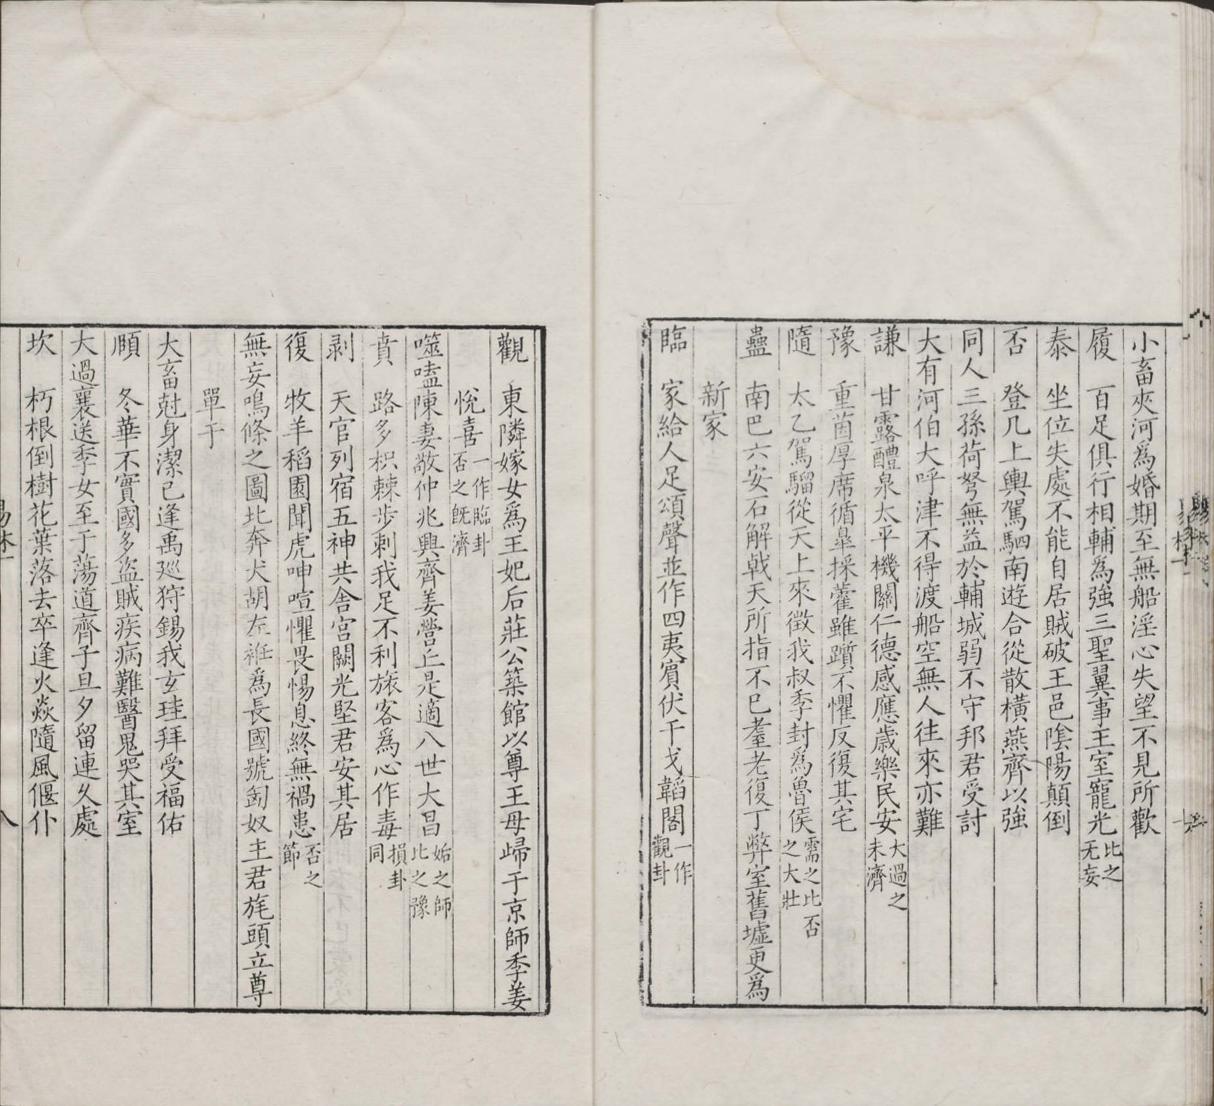 小畜夾河爲婚期至無船淫心失望不見所歡
履　百足俱行相輔爲強三聖翼事王室寵光比之无妄
泰　坐位失處不能自居賊破王邑陰陽顛倒
否　登几上輿駕駟南遊合從散橫燕齊以強
同人三孫荷弩無益於輔城弱不守邦君受討
大有河伯大呼津不得渡船空無人往來亦難
謙　甘露醴泉太平機關仁德感應歲樂民安大過之未濟
豫　重茵厚席循皐採藿雖躓不懼反復其宅
隨　太乙駕騮從天上來徵我叔季封爲魯侯需之比否之大壯
蠱　南巴六安石解戟天所指不已耋老復丁弊室舊墟更爲
新家
臨　家給人足頌聲並作四夷賓伏干戈韜閣一作觀卦
觀　東隣嫁女爲王妃后莊公築館以尊王母歸于京師季姜
悅喜一作臨卦否之旣濟
噬嗑陳妻敬仲兆興齊姜營丘是適八世大昌姤之師比之豫
賁　路多枳棘步刺我足不利旅客爲心作毒損卦同
剥　天官列宿五神共舍宮闕光堅君安其居
復　牧羊稻園聞虎呻喧懼畏惕息終無禍患否之節
無妄鳴條之圖北奔犬胡左袵爲長國號匈奴主君旄頭立尊
單于
大畜尅身潔己逢禹廵狩錫我玄珪拜受福佑
頤　冬華不實國多盜賊疾病難醫鬼哭其室
大過襄送季女至于蕩道齊子旦夕留連久處
坎　朽根倒樹花葉落去卒逢火焱隨風偃仆
易林一
八